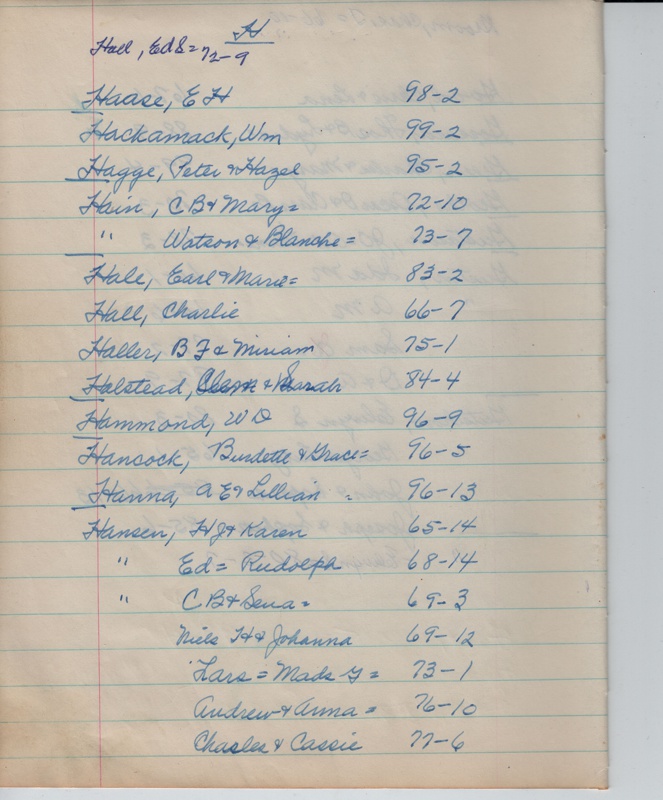 H
Hall, Ed S = 72-9
Haase, E H 98-2
Hackamack, Wm 99-2
Hagge, Peter & Hazel 95-2
Hain, C B & Mary = 72-10
" Watson & Blanche = 73-7
Hale, Earl & Marie = 83-2
Hall, Charlie 66-7
Haller, B F & Miriam 75-1
Halstead, & Sarah 84-4
Hammond, W D 96-9
Hancock, Burdette & Grace = 96-5
Hanna, A E & Lillian = 96-13
Hansen, H J & Karen 65-14
" Ed = Rudolph 68-14
" C B & Sena = 69-3
Niels H & Johanna 69-12
Lars = Mads G = 73-1
Andrew & Anna = 76-10
Charles & Cassie 77-6